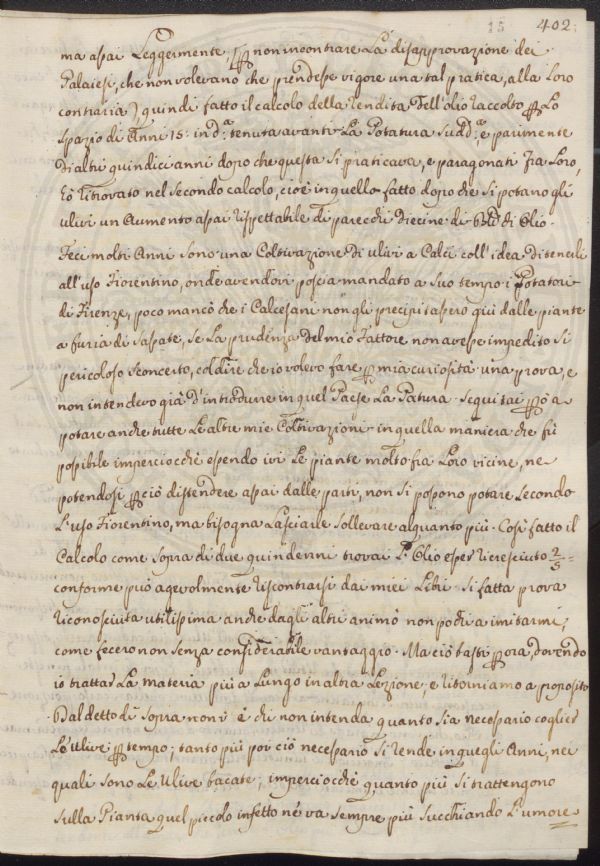 15 402
ma assai Leggermente p non incontrare La disapprovazione dei
Palaiesi, che non volevano che prendesse vigore una tal pratica, alla loro
contraria) quindi fatto il calcolo della rendita Dell'olio raccolto p Lo
spazio di Anni 15: in d.a tenuta avanti La Potatura Sudd.a, e parimente
D'altri quindici anni dopo che questa Si praticava, e paragonati fra Loro,
hò ritrovato nel Secondo calcolo, cioè in quello fatto dopo che Si potano gli
ulivi un Aumento assai rispettabile di parecchi diecine di di Olio.
Feci molti Anni Sono una Coltivazione Di ulivi a Calci coll'idea Di tenerli
all'uso Fiorentino, onde avendovi poscia mandato a Suo tempo i Potatori
di Firenze, poco mancò che i Calcesani non gli precipitassero giù dalle piante
a furia di Sassate, Se La prudenza Del mio Fattore non avesse impedito Si
pericoloso Sconcerto, col dire che io volevo fare p mia curiosità una prova, e
non intendevo già D'introdurre in quel Paese La Potatura. Seguitai però a
potare anche tutte Le altre mie Coltivazioni in quella maniera che fù
possibile imperciocchè essendo ivi Le piante molto fra Loro vicine, ne
potendosi pciò distendere assai dalle parti, non Si possono potare Secondo
L'uso Fiorentino, ma bisogna Lasciarle Sollevare alquanto più. Così fatto il
Calcolo come Sopra di due quindenni trovai L'Olio esser ricresciuto 2/5
conforme può agevolmente riscontrarsi dai miei Libri. Si fatta prova
riconosciuta utilissima anche dagli altri animò non pochi a imitarmi,
come fecero non Senza considerabile vantaggio. Ma ciò basti p ora, dovendo
io trattar La materia più a Lungo in altra Lezione, e ritorniamo a proposito
Dal detto di Sopra non vi è chi non intenda quanto Sia necessario coglier
Le Ulive p tempo; tanto più poi ciò necessario Si rende in quegli Anni, nei
quali Sono Le Ulive bacate; imperciocchè quanto più Si trattengono
Sulla Pianta quel piccolo insetto ne va Sempre più Succhiando L'umore